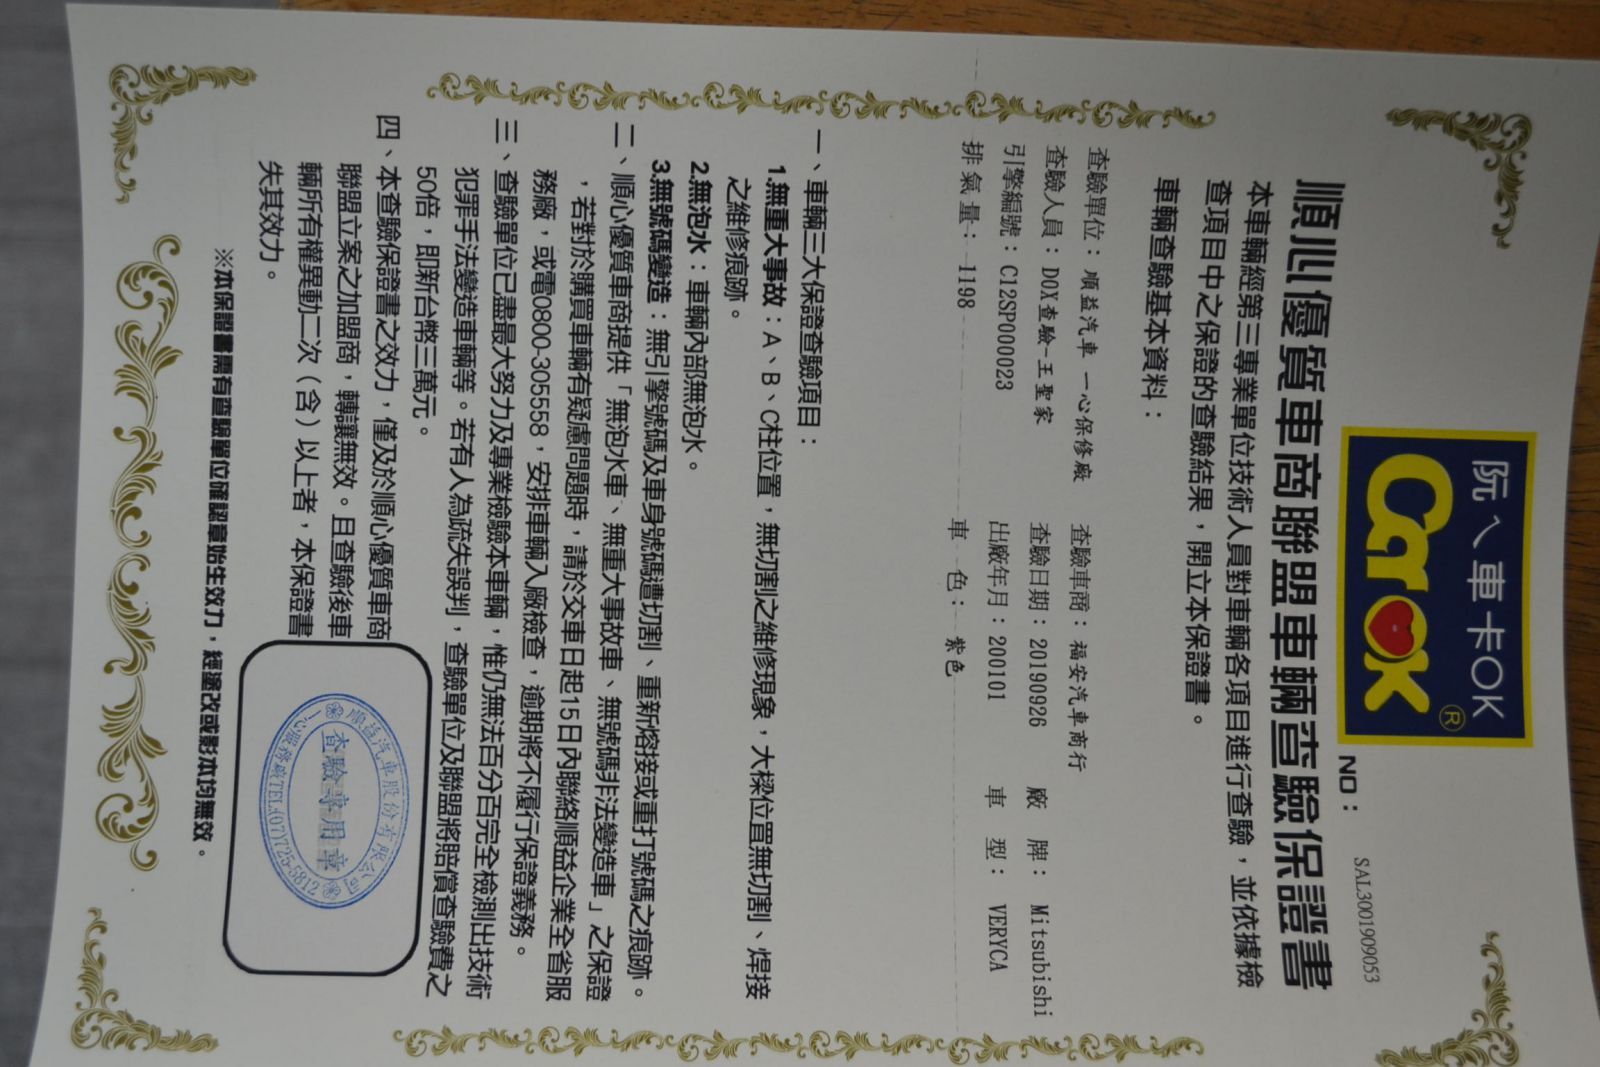 阮ㄟ車卡OK
CarOK®
NO：
SAL3001909053
順心優質車商聯盟車輛查驗保證書
本車輛經第三專業單位技術人員對車輛各項目進行查驗，並依據檢
查項目中之保證的查驗結果，開立本保證書。
車輛查驗基本資料：
查驗單位：順益汽車 一心保修廠 查驗車商：福安汽車商行
查驗人員：DOX查驗-王聖家 查驗日期：20190926 廠 牌：Mitsubishi
引擎編號：C12SP000023 出廠年月：200101 車 型：VERYCA
排 氣 量：1198 車 色：紫色
一、車輛三大保證查驗項目：
1.無重大事故：A、B、C柱位置，無切割之維修現象，大樑位置無切割、焊接
之維修痕跡。
2.無泡水：車輛內部無泡水。
3.無號碼變造：無引擎號碼及車身號碼遭切割、重新熔接或重打號碼之痕跡。
二、順心優質車商提供「無泡水車、無重大事故車、無號碼非法變造車」之保證
，若對於購買車輛有疑慮問題時，請於交車日起15日內聯絡順益企業全省服
務廠，或電0800-305558，安排車輛入廠檢查，逾期將不履行保證義務。
三、查驗單位已盡最大努力及專業檢驗本車輛，惟仍無法百分百完全檢測出技術
犯罪手法變造車輛等。若有人為疏失誤判，查驗單位及聯盟將賠償查驗費之
50倍，即新台幣三萬元。
四、本查驗保證書之效力，僅及於順心優質車商
聯盟立案之加盟商，轉讓無效。且查驗後車
輛所有權異動二次（含）以上者，本保證書
失其效力。
順益汽車股份有限公司
查驗專用章
一心服務廠TEL:(07)725-5812
※本保證書需有查驗單位確認章始生效力，經塗改或影本均無效。